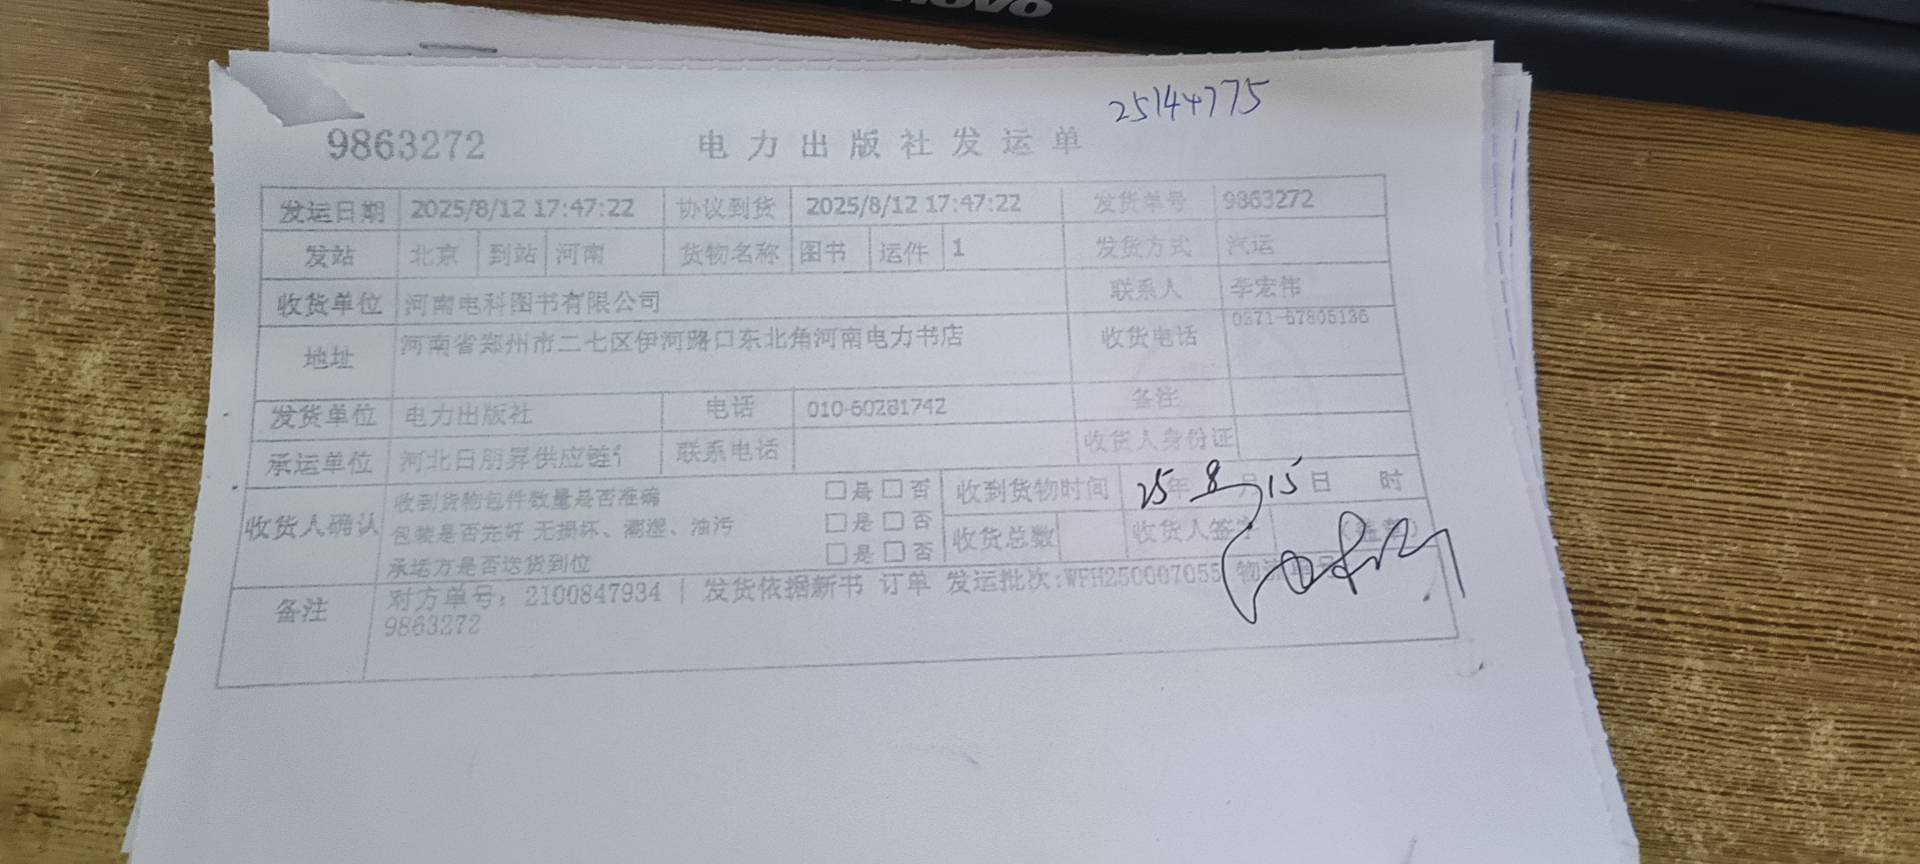 novo
25144775
9863272 电力出版社发运单
发运日期 2025/8/12 17:47:22 协议到货 2025/8/12 17:47:22 发货单号 9863272
发站 北京 到站 河南 货物名称 图书 运件 1 发货方式 汽运
收货单位 河南电科图书有限公司 联系人 李宏伟
地址 河南省郑州市二七区伊河路口东北角河南电力书店 收货电话 0371-67805136
发货单位 电力出版社 电话 010-60281742 备注
承运单位 河北日朋昇供应链 联系电话 收货人身份证
收货人确认 收到货物包件数量是否准确 □是 □否 收到货物时间 25年8月15日 时
包装是否完好 无损坏、潮湿、油污 □是 □否 收货总数 收货人签字 (盖章)
承运方是否送货到位 □是 □否
备注 对方单号: 2100847934 | 发货依据新书 订单 发运批次:WFH250007055 物流单号
9863272